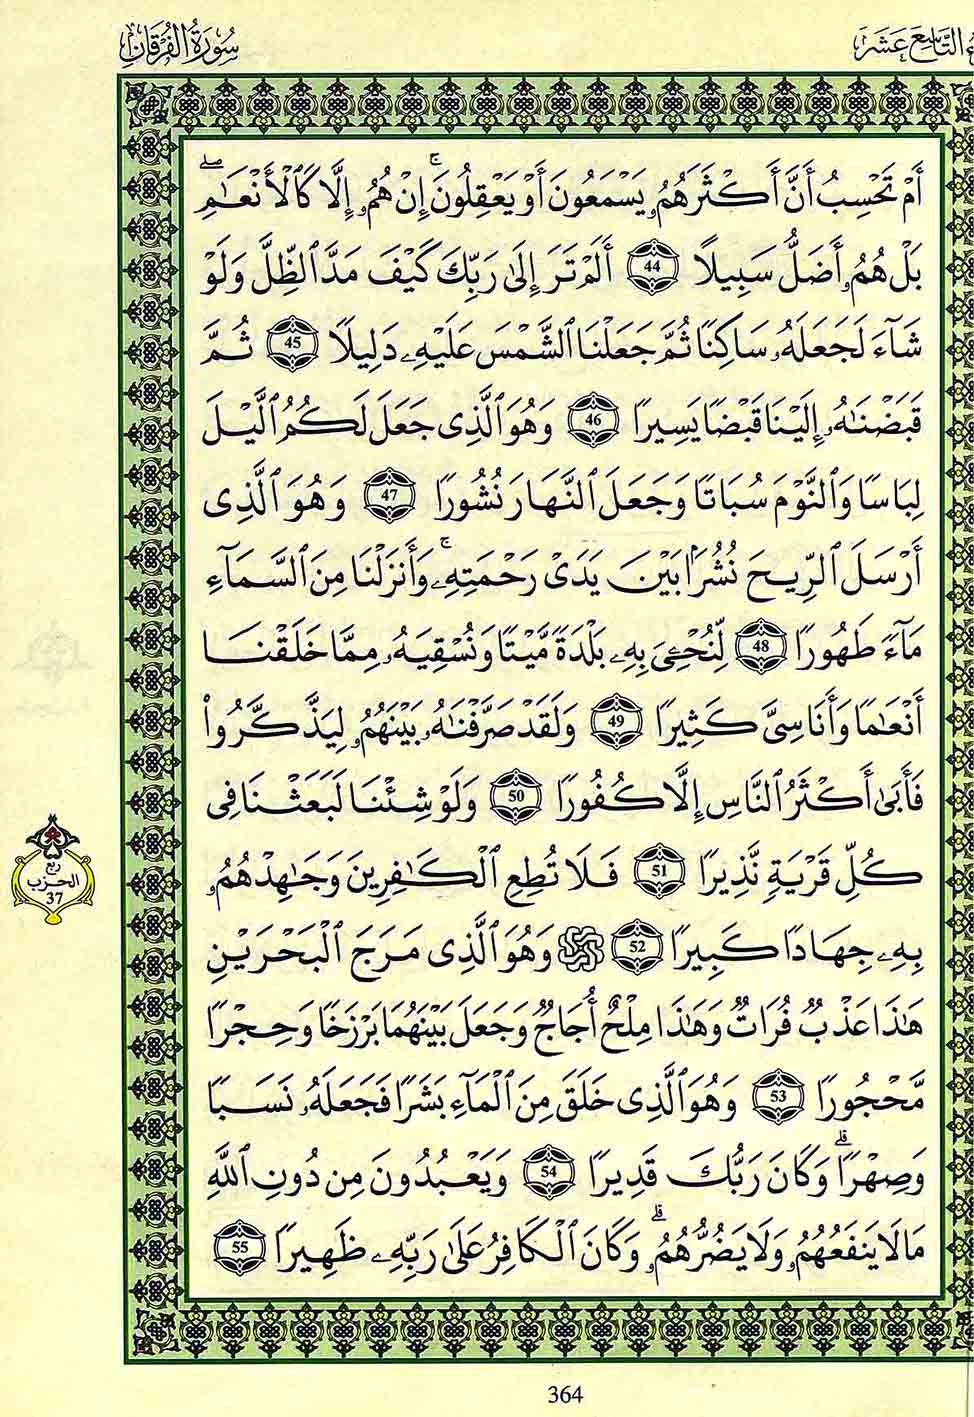 التَّاسِعَ عَشَرَ
سُورَةُ الفُرْقَانِ
أَمْ تَحْسِبُ أَنَّ أَكْثَرَهُمُۥ يَسْمَعُونَ أَوْ يَعْقِلُونَۚ إِنْ هُمُۥ إِلَّا كَٱلْأَنْعَٰمِۖ
بَلْ هُمُۥ أَضَلُّ سَبِيلًا 44 أَلَمْ تَرَ إِلَىٰ رَبِّكَ كَيْفَ مَدَّ ٱلظِّلَّ وَلَوْ
شَآءَ لَجَعَلَهُۥ سَاكِنًا ثُمَّ جَعَلْنَا ٱلشَّمْسَ عَلَيْهِۦ دَلِيلًا 45 ثُمَّ
قَبَضْنَٰهُۥ إِلَيْنَا قَبْضًا يَسِيرًا 46 وَهُوَ ٱلَّذِى جَعَلَ لَكُمُ ٱلَّيْلَ
لِبَاسًا وَٱلنَّوْمَ سُبَاتًا وَجَعَلَ ٱلنَّهَارَ نُشُورًا 47 وَهُوَ ٱلَّذِى
أَرْسَلَ ٱلرِّيحَ نُشُرًۢا بَيْنَ يَدَىْ رَحْمَتِهِۦۚ وَأَنزَلْنَا مِنَ ٱلسَّمَآءِ
مَآءً طَهُورًا 48 لِّنُحْـِۧىَ بِهِۦ بَلْدَةً مَّيْتًا وَنُسْقِيَهُۥ مِمَّا خَلَقْنَا
أَنْعَٰمًا وَأَنَاسِىَّ كَثِيرًا 49 وَلَقَدْ صَرَّفْنَٰهُۥ بَيْنَهُمُۥ لِيَذَّكَّرُوا۟
فَأَبَىٰ أَكْثَرُ ٱلنَّاسِ إِلَّا كُفُورًا 50 وَلَوْ شِئْنَا لَبَعَثْنَا فِى
كُلِّ قَرْيَةٍ نَّذِيرًا 51 فَلَا تُطِعِ ٱلْكَٰفِرِينَ وَجَٰهِدْهُمُۥ
بِهِۦ جِهَادًا كَبِيرًا 52 وَهُوَ ٱلَّذِى مَرَجَ ٱلْبَحْرَيْنِ
هَٰذَا عَذْبٌ فُرَاتٌ وَهَٰذَا مِلْحٌ أُجَاجٌ وَجَعَلَ بَيْنَهُمَا بَرْزَخًا وَحِجْرًا
مَّحْجُورًا 53 وَهُوَ ٱلَّذِى خَلَقَ مِنَ ٱلْمَآءِ بَشَرًا فَجَعَلَهُۥ نَسَبًا
وَصِهْرًاۗ وَكَانَ رَبُّكَ قَدِيرًا 54 وَيَعْبُدُونَ مِن دُونِ ٱللَّهِ
مَا لَا يَنفَعُهُمُۥ وَلَا يَضُرُّهُمُۥۗ وَكَانَ ٱلْكَافِرُ عَلَىٰ رَبِّهِۦ ظَهِيرًا 55
ربع
الحزب
37
364